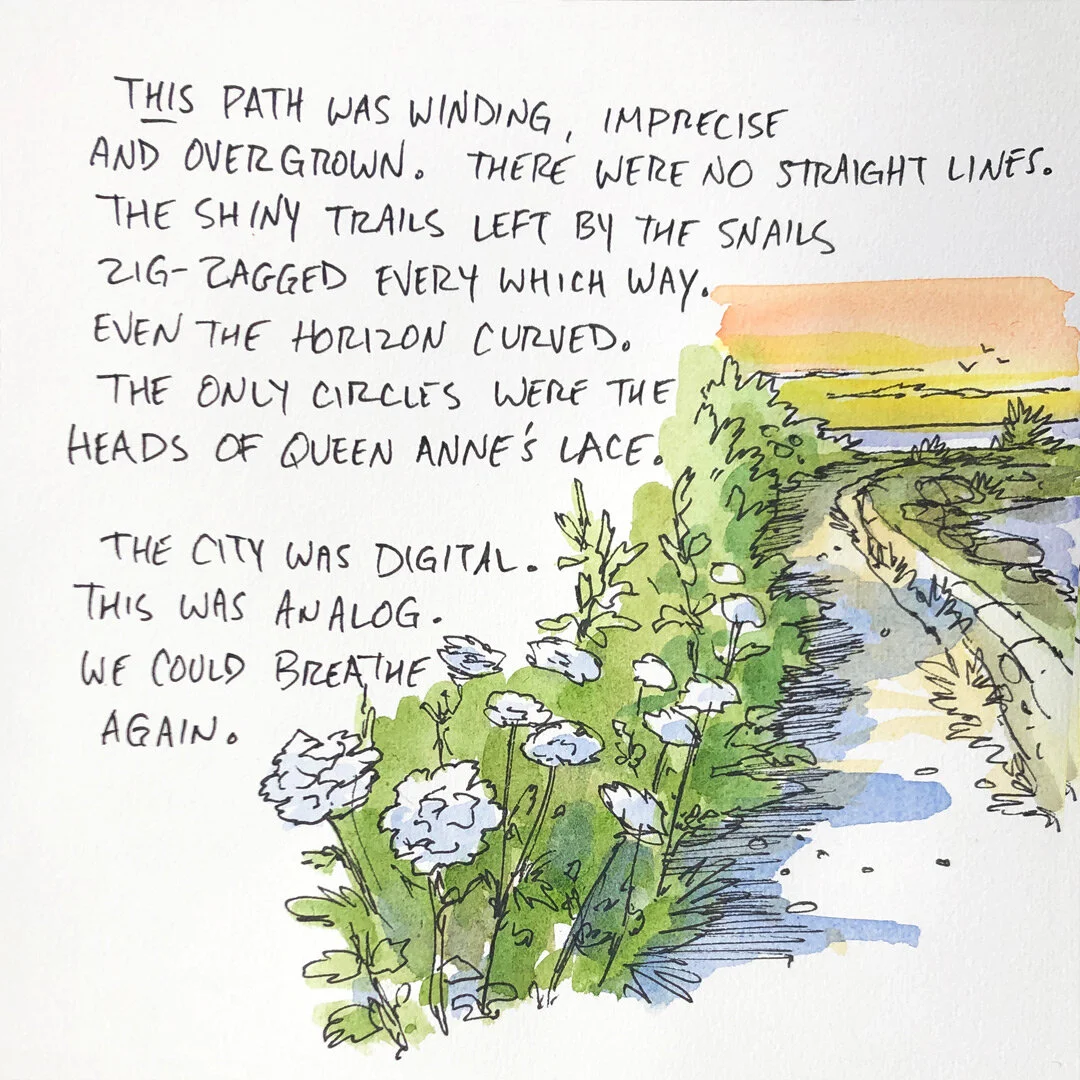 THIS PATH WAS WINDING, IMPRECISE
AND OVERGROWN. THERE WERE NO STRAIGHT LINES.
THE SHINY TRAILS LEFT BY THE SNAILS
ZIG-ZAGGED EVERY WHICH WAY.
EVEN THE HORIZON CURVED.
THE ONLY CIRCLES WERE THE
HEADS OF QUEEN ANNE'S LACE.
THE CITY WAS DIGITAL.
THIS WAS ANALOG.
WE COULD BREATHE
AGAIN.